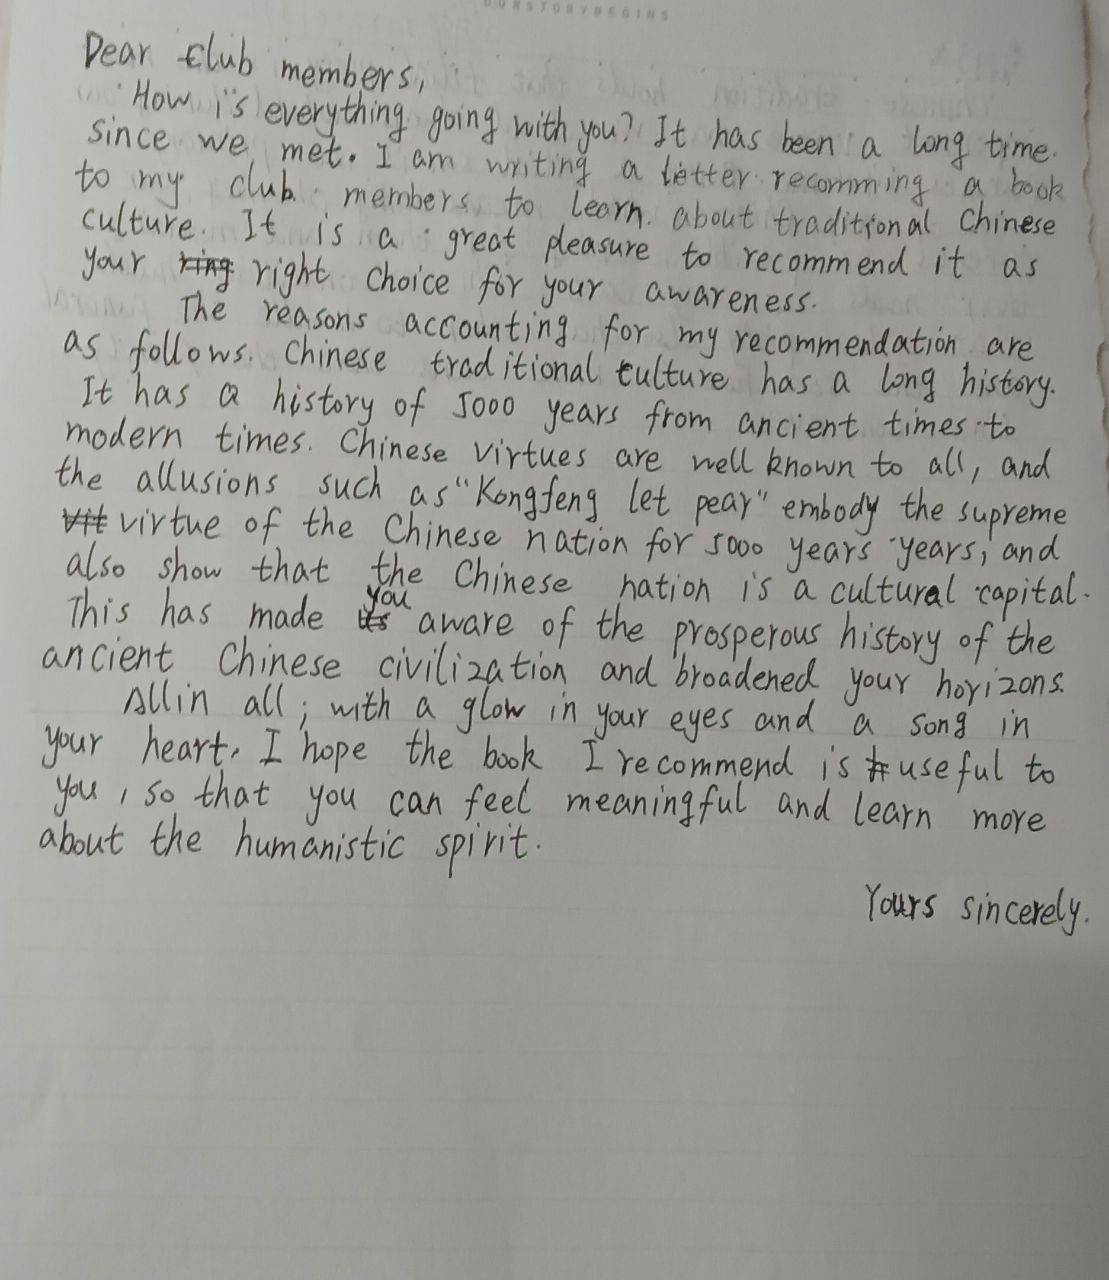 OURSTORYBEGINS
Dear Club members,
How is everything going with you? It has been a long time.
since we met. I am writing a letter recomming a book
to my club members to learn about traditional Chinese
culture. It is a great pleasure to recommend it as
your right choice for your awareness.
The reasons accounting for my recommendation are
as follows. Chinese traditional culture has a long history.
It has a history of 5000 years from ancient times to
modern times. Chinese virtues are well known to all, and
the allusions such as "Kongfeng let pear" embody the supreme
virtue of the Chinese nation for 5000 years years, and
also show that the Chinese nation is a cultural capital.
This has made you aware of the prosperous history of the
ancient Chinese civilization and broadened your horizons.
Allin all, with a glow in your eyes and a song in
your heart, I hope the book I recommend is useful to
you, so that you can feel meaningful and learn more
about the humanistic spirit.
Yours sincerely.